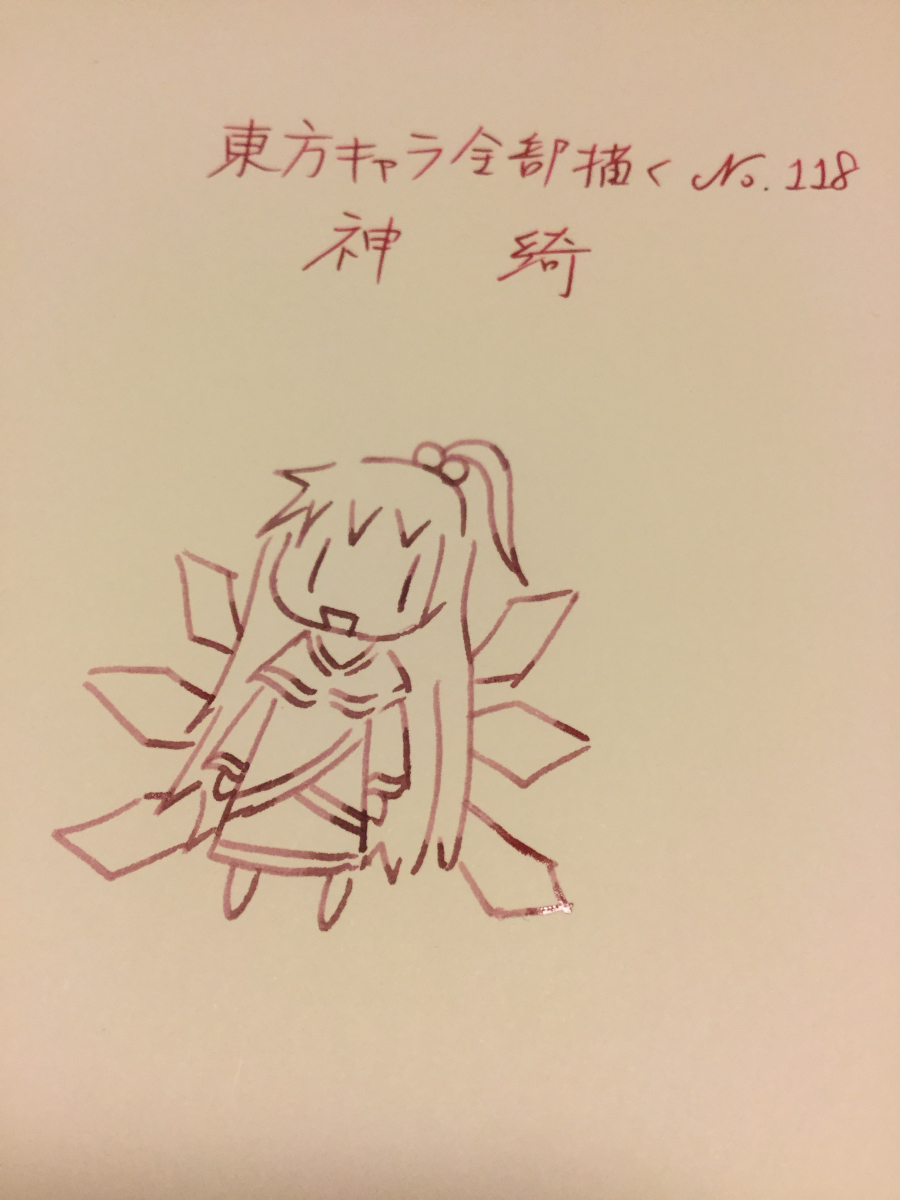 東方キャラ全部描く No.118
神 綺